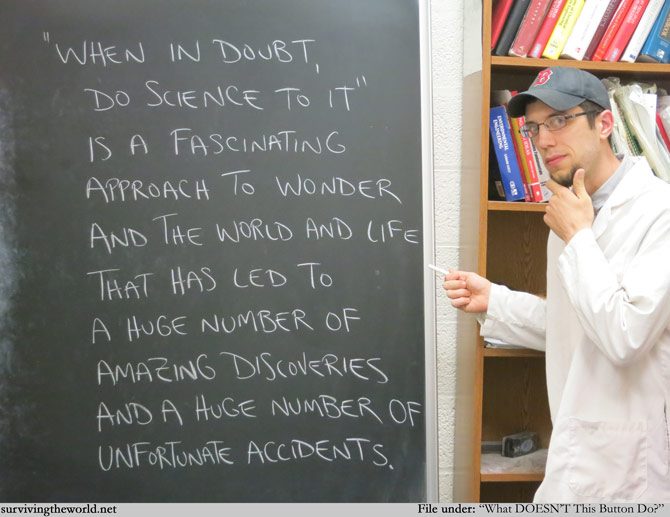 "WHEN IN DOUBT,
DO SCIENCE TO IT"
IS A FASCINATING
APPROACH TO WONDER
AND THE WORLD AND LIFE
THAT HAS LED TO
A HUGE NUMBER OF
AMAZING DISCOVERIES
AND A HUGE NUMBER OF
UNFORTUNATE ACCIDENTS.
B
ENVIRONMENTAL
ENGINEERING
survivingtheworld.net
File under: "What DOESN'T This Button Do?"